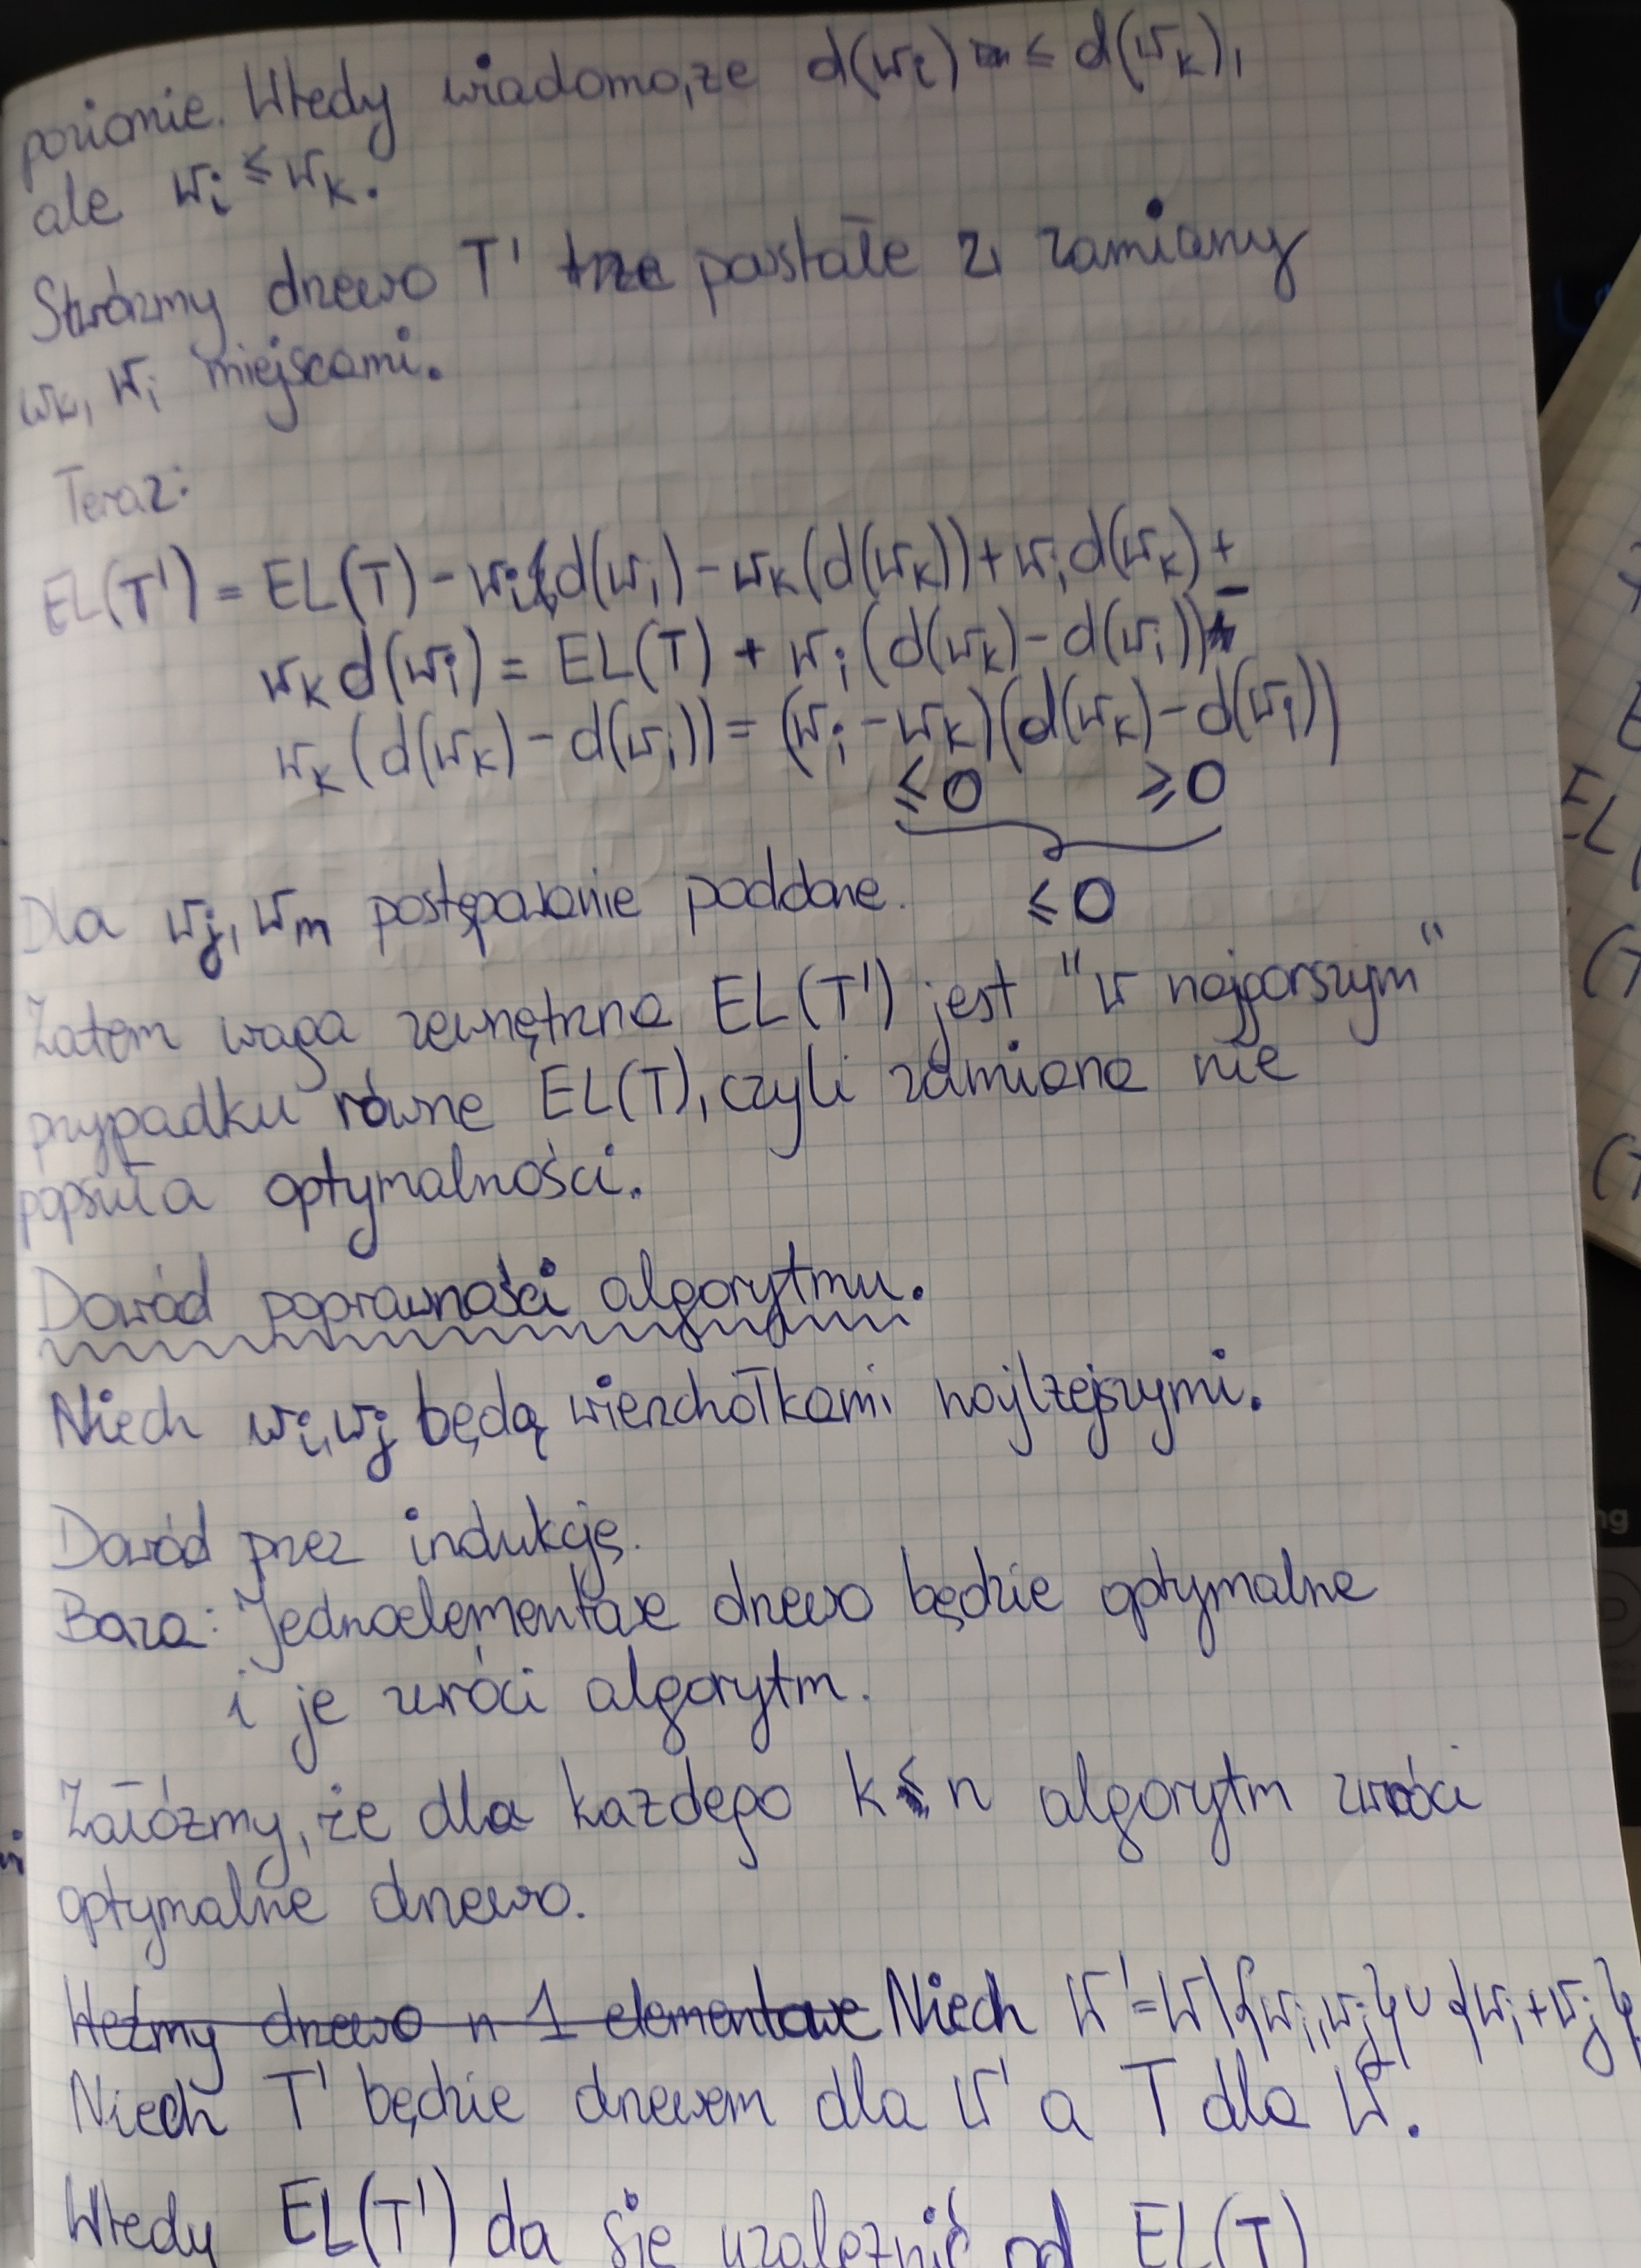 poziomie. Wtedy wiadomo, że d(wi) ≤ d(wk),
ale wi ≤ wk.
Stwórzmy drzewo T' powstałe z zamiany
wk, wi miejscami.
Teraz:
EL(T') = EL(T) - wi d(wi) - wk(d(wk)) + wi d(wk) +
wk d(wi) = EL(T) + wi (d(wk) - d(wi)) -
wk (d(wk) - d(wi)) = (wi - wk)(d(wk) - d(wi))
≤ 0 ≥ 0
≤ 0
Dla wj, wm postępowanie poddone.
Zatem waga zewnętrzna EL(T') jest "w najgorszym"
przypadku równe EL(T), czyli zamiana nie
popsuła optymalności.
Dowód poprawności algorytmu.
Niech wi, wj będą wierzchołkami najlżejszymi.
Dowód przez indukcję.
Baza: Jednoelementowe drzewo będzie optymalne
i je zwróci algorytm.
Załóżmy, że dla każdego k ≤ n algorytm zwróci
optymalne drzewo.
Weźmy drzewo n 1 elementowe Niech W' = W\{wi, wj} ∪ {wi + wj}.
Niech T' będzie drzewem dla W' a T dla W.
Wtedy EL(T') da się uzależnić od EL(T)
EL